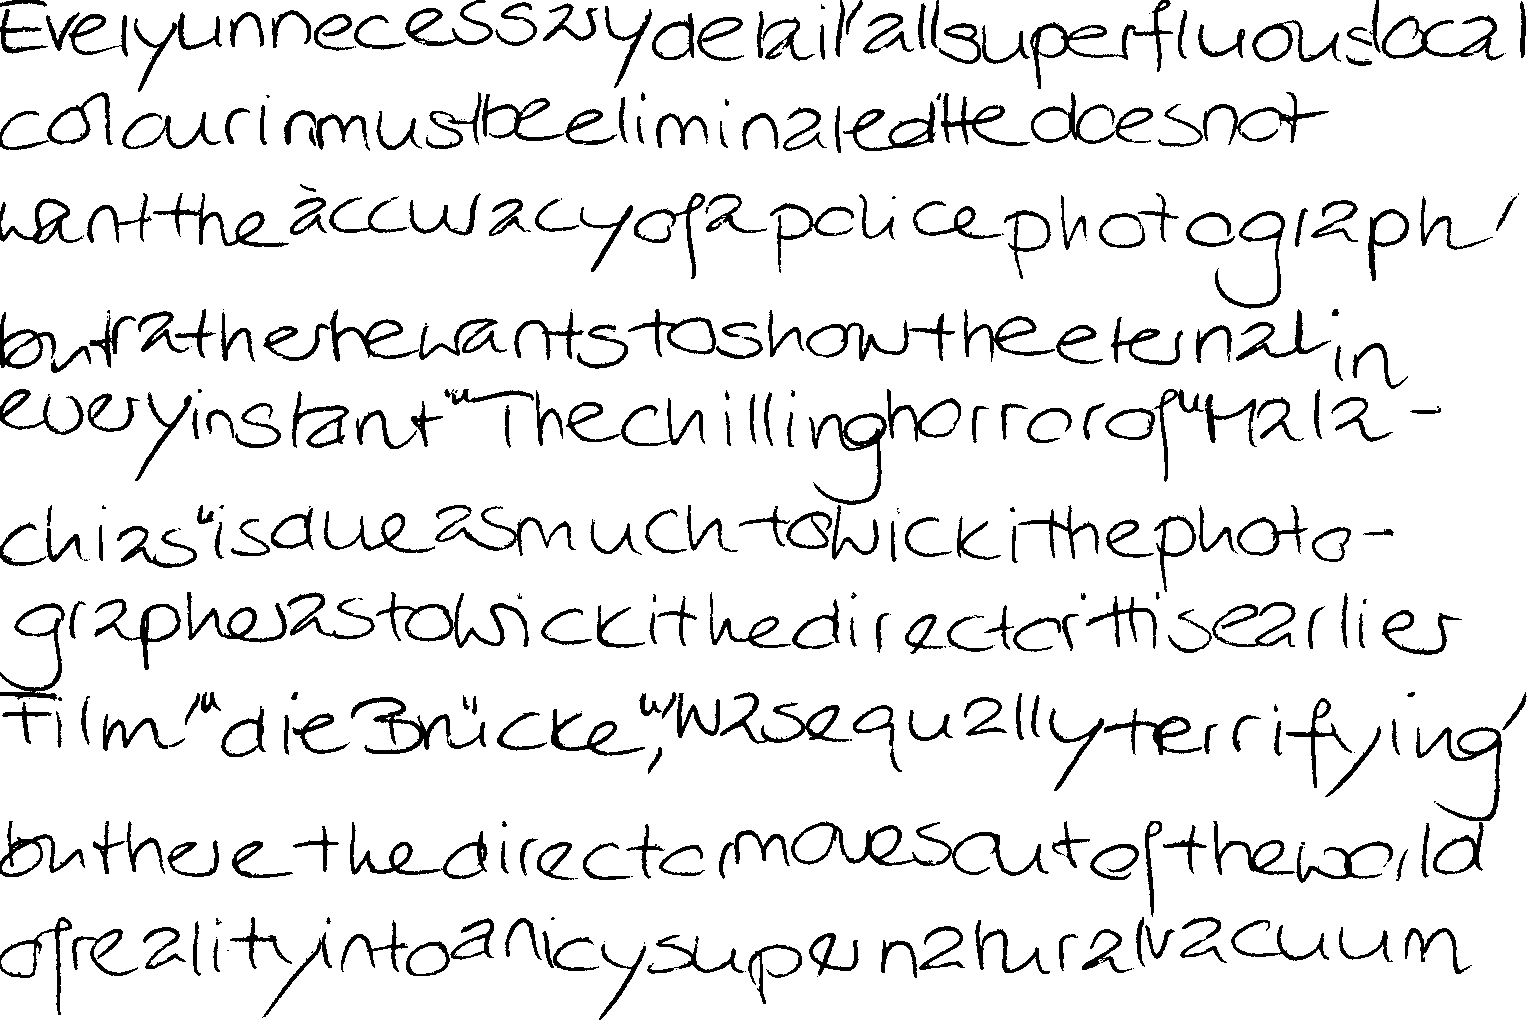 Every unnecessary detail, all superfluous local
colour in must be eliminated. He does not
want the accuracy of a police photograph,
but rather he wants to show the eternal in
every instant." The chilling horror of "Mala-
chias" is due as much to Wicki the photo-
grapher as to Wicki the director. His earlier
film, "die Brücke," was equally terrifying,
but here the director moves out of the world
of reality into an icy supernatural vacuum